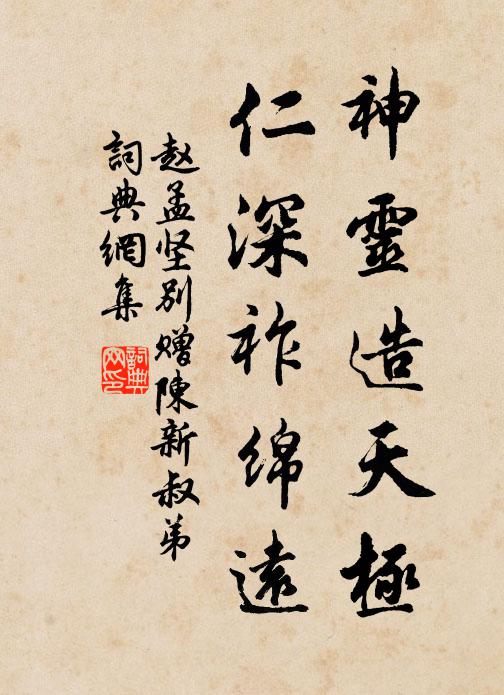 神靈造天極
仁深祚绵遠
赵孟坚别赠陳新叔弟
詞典網集
詞典
网印